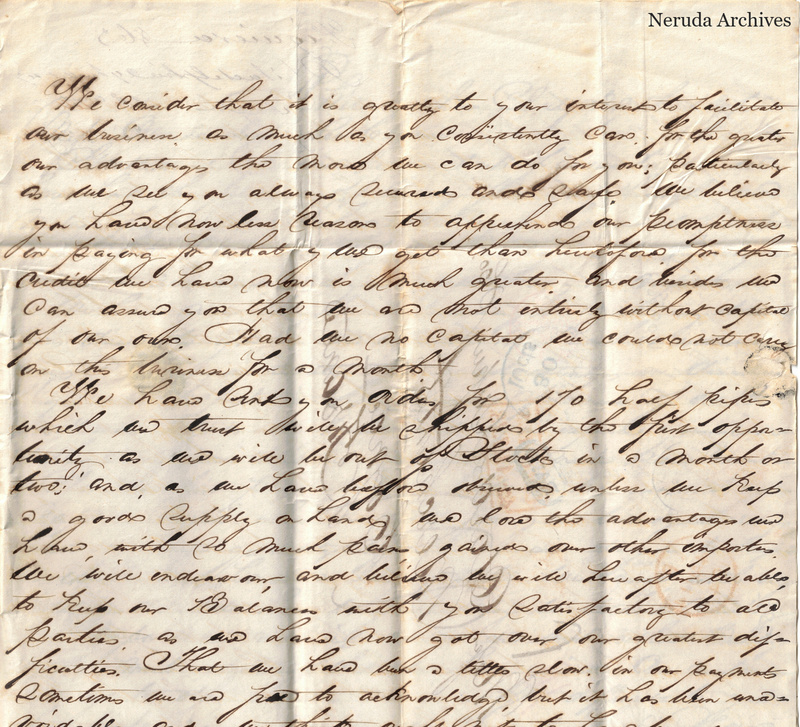 Neruda Archives
We consider that it is greatly to your interest to facilitate
our business as much as you consistently can, for the greater
our advantages the more we can do for you; particularly
as we see you always secured and safe. We believe
you have now less reasons to apprehend our promptness
in paying for what we get than heretofore for the
credit we have now is much greater and besides we
can assure you that we are not entirely without capital
of our own. Had we no capital we could not carry
on this business for a month.
We have sent you order for 170 half pipes
which we trust will be shipped by the first oppor=
tunity as we will be out of Stock in a month or
two; and, as we have before observed, unless we keep
a good supply on hand, we lose the advantages we
have, with so much pains gained over other importers.
We will endeavour, and believe we will hereafter be able,
to keep our Balances with you satisfactory to all
parties, as we have now got over our greatest dif=
ficulties. That we have been a little slow in our payments
sometimes we are free to acknowledge, but it has been una=